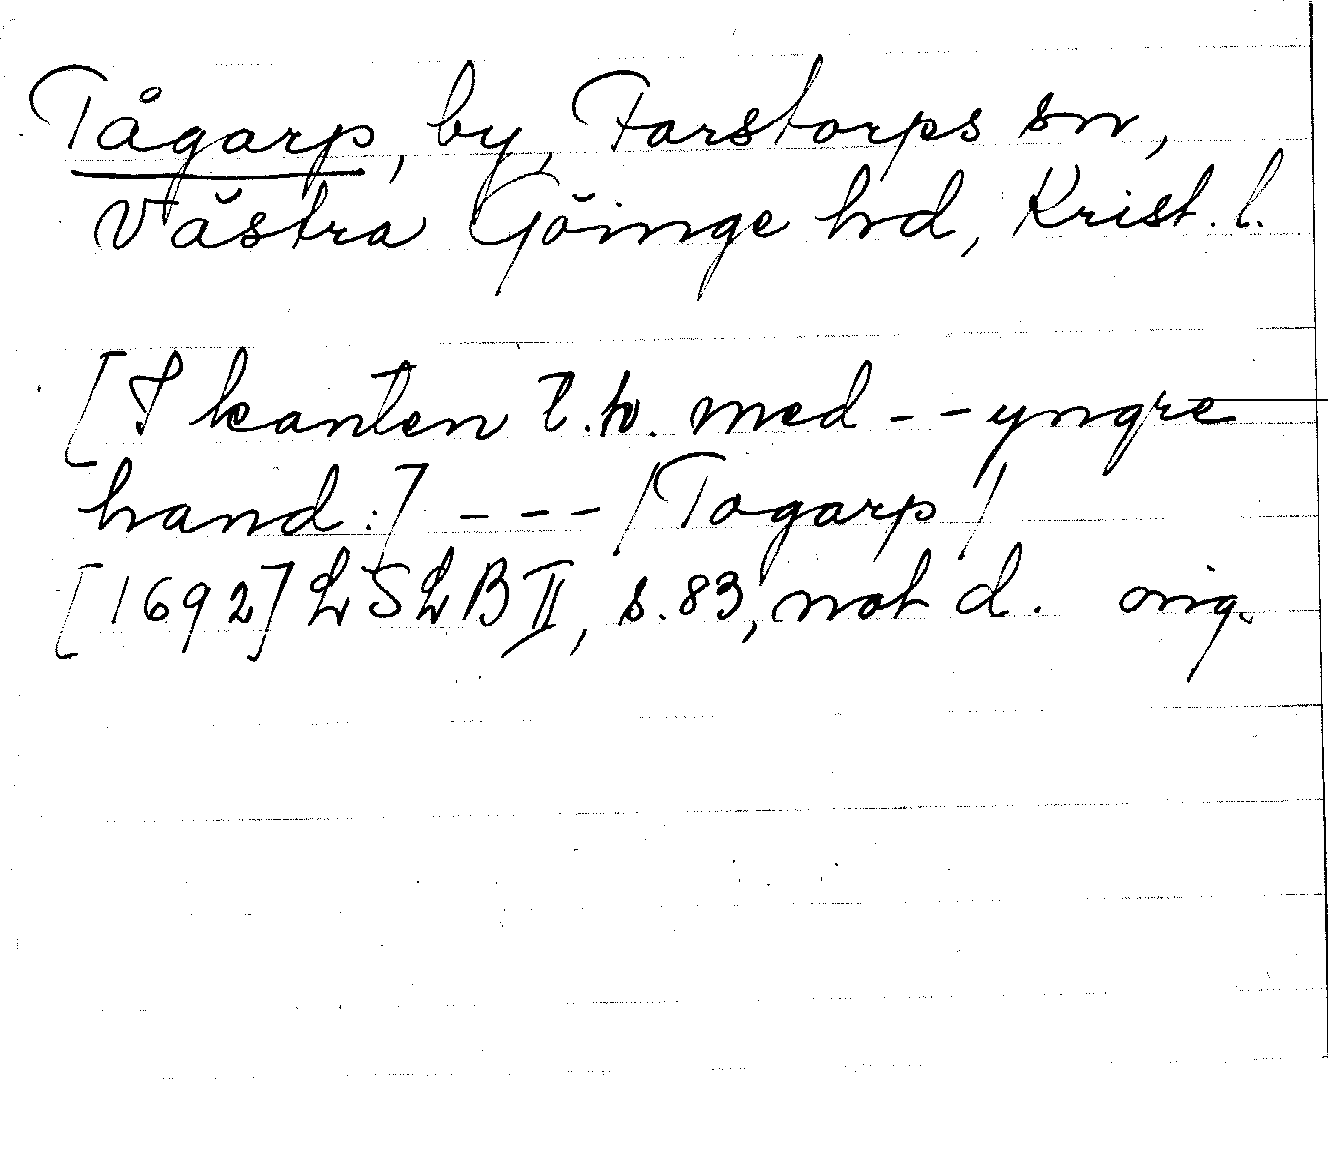 Tågarp, by, Farstorps sn,
Västra Göinge hd, Krist. l.
[I kanten t.h. med - - yngre
hand:] - - - /Togarp/
[1692] LSLB II, s. 83, not d. orig.